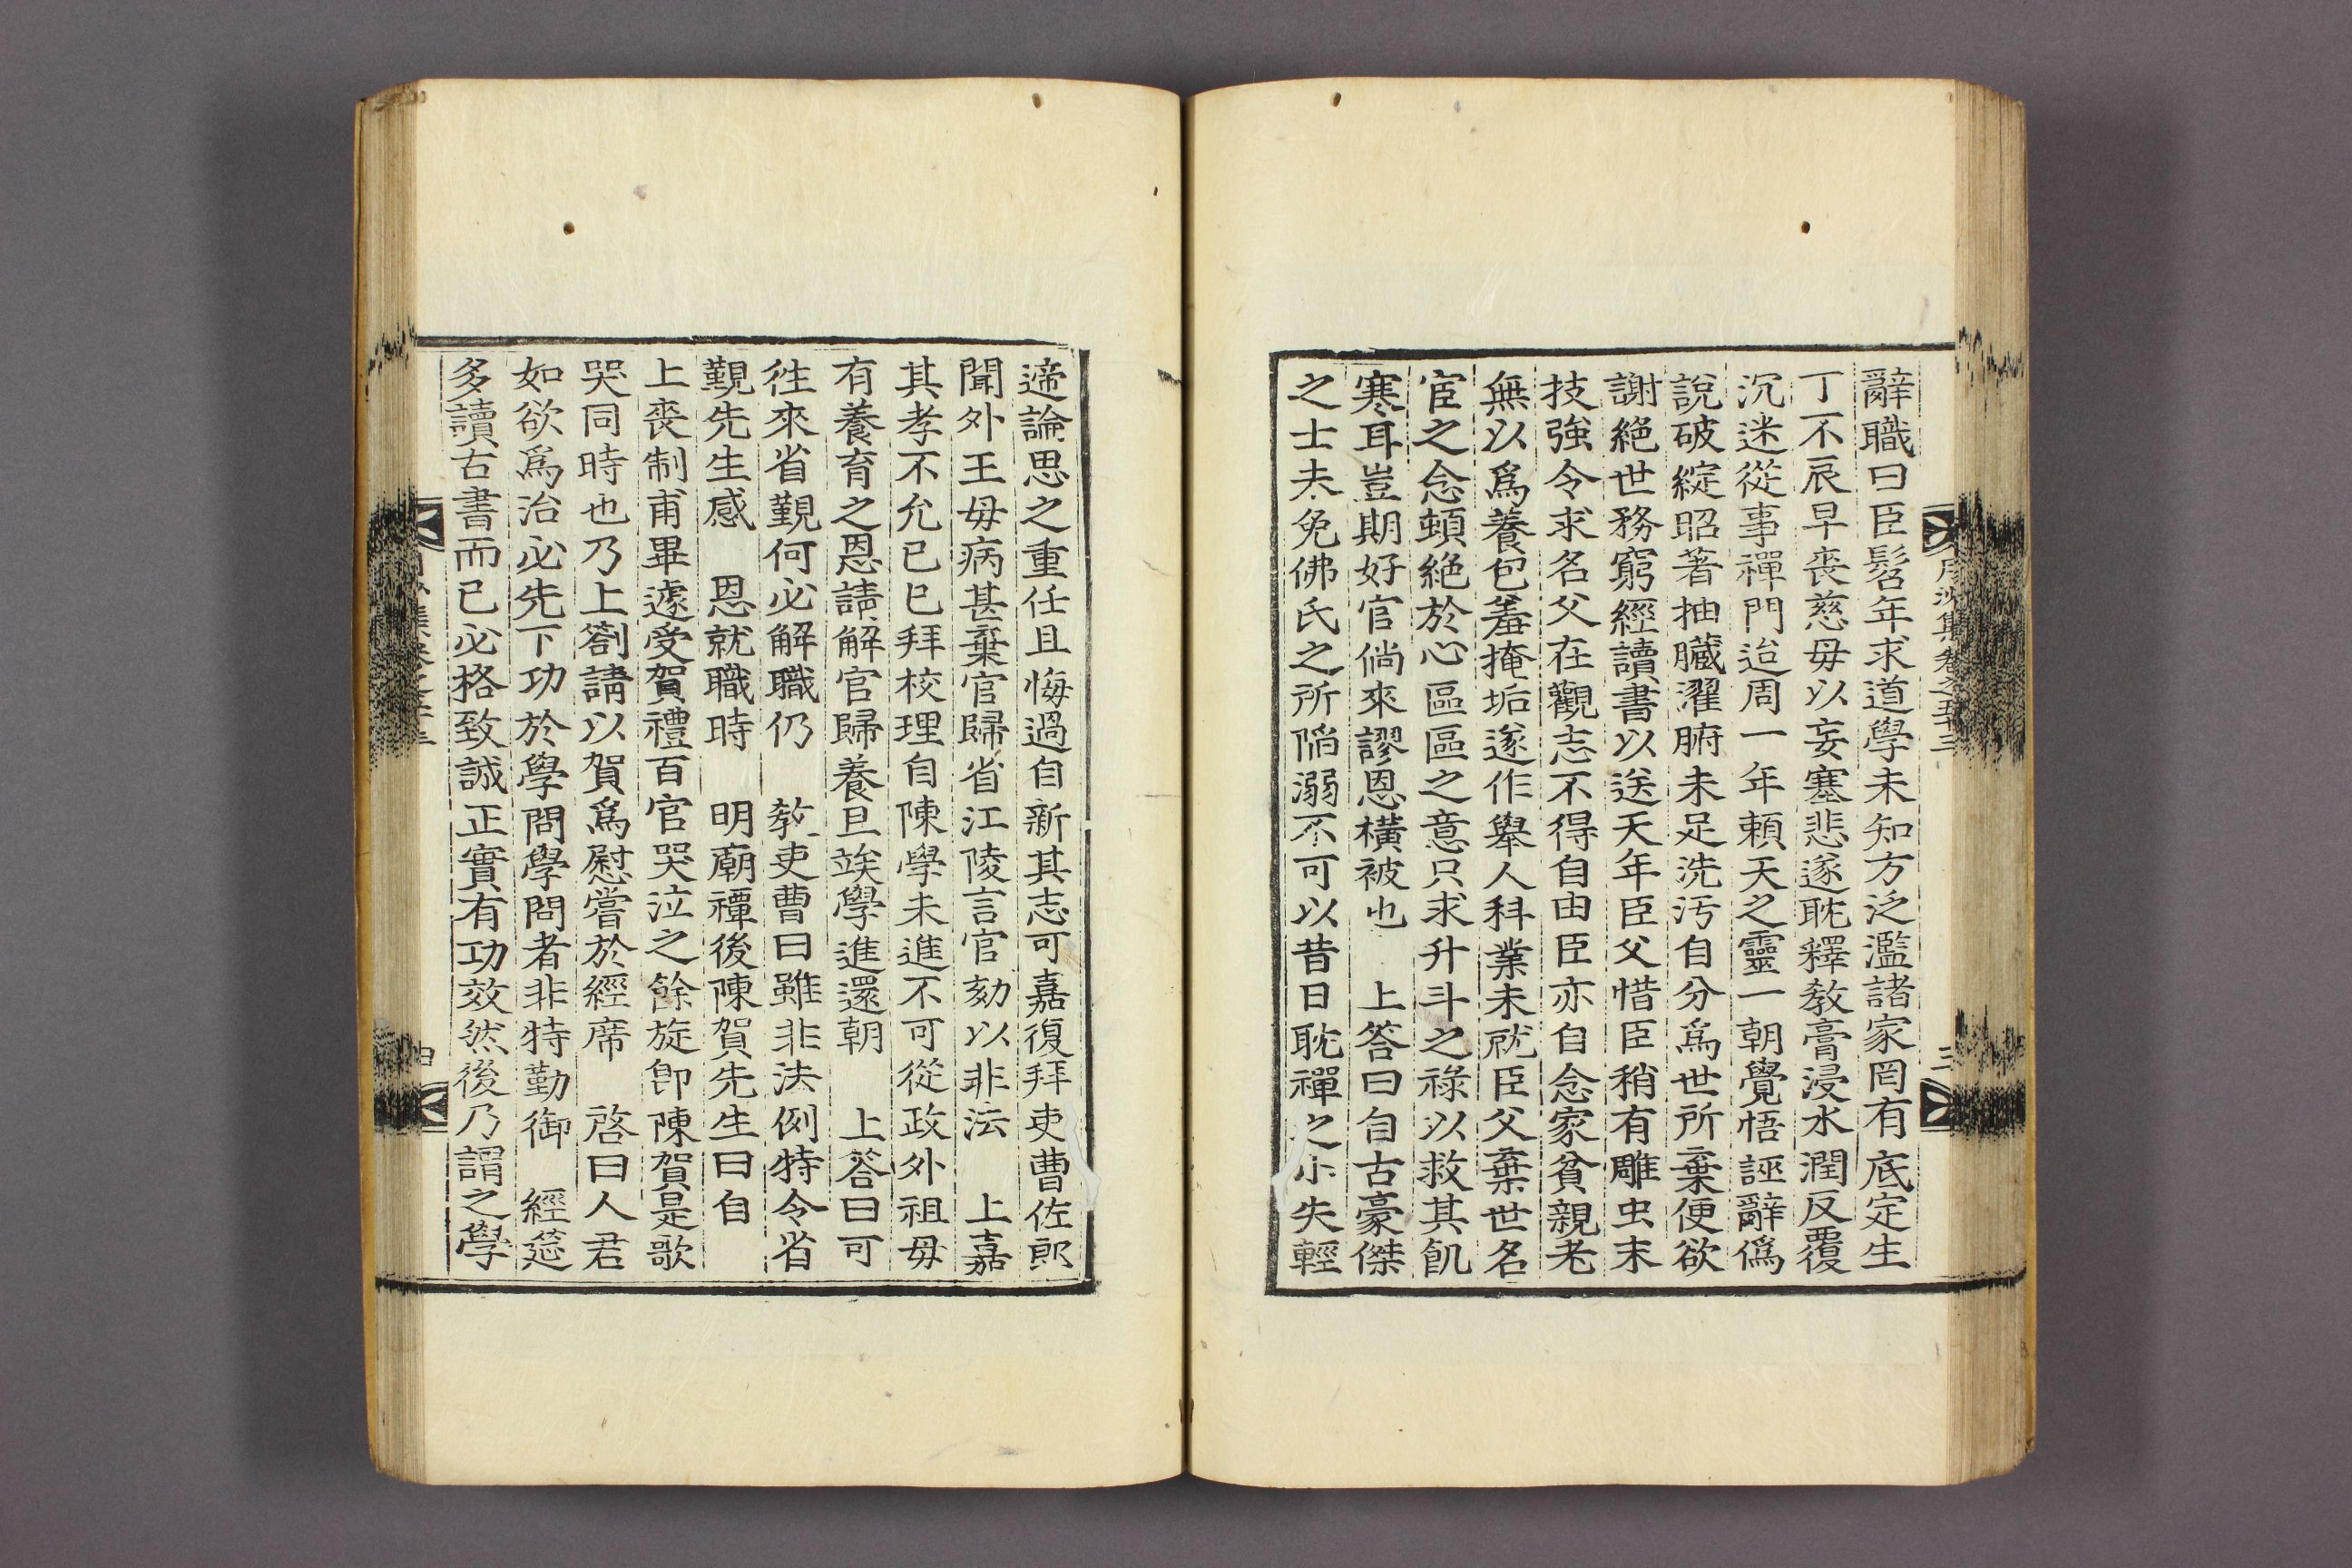 辭職曰臣髫年求道學未知方泛濫諸家罔有底定生
丁不辰早喪慈母以妄塞悲遂耽釋教膏浸水潤反覆
沉迷從事禪門迨周一年賴天之靈一朝覺悟誣辭僞
說破綻昭著抽臟濯腑未足洗汚自分爲世所棄便欲
謝絶世務窮經讀書以送天年臣父惜臣稍有雕虫末
技強令求名父在觀志不得自由臣亦自念家貧親老
無以爲養包羞掩垢遂作舉人科業未就臣父棄世名
宦之念頓絶於心區區之意只求升斗之祿以救其飢
寒耳豈期好官倘來謬恩橫被也 上答曰自古豪傑
之士未免佛氏之所陷溺不可以昔日耽禪之小失輕
遆論思之重任且悔過自新其志可嘉復拜吏曹佐郎
聞外王母病甚棄官歸省江陵言官劾以非法 上嘉
其孝不允己巳拜校理自陳學未進不可從政外祖母
有養育之恩請解官歸養且竢學進還朝 上答曰可
徃來省覲何必解職仍 敎吏曹曰雖非法例特令省
覲先生感 恩就職時 明廟禫後陳賀先生曰自
上喪制甫畢遽受賀禮百官哭泣之餘旋卽陳賀是歌
哭同時也乃上劄請以賀爲慰嘗於經席 啓曰人君
如欲爲治必先下功於學問學問者非特勤御 經筵
多讀古書而已必格致誠正實有功效然後乃謂之學